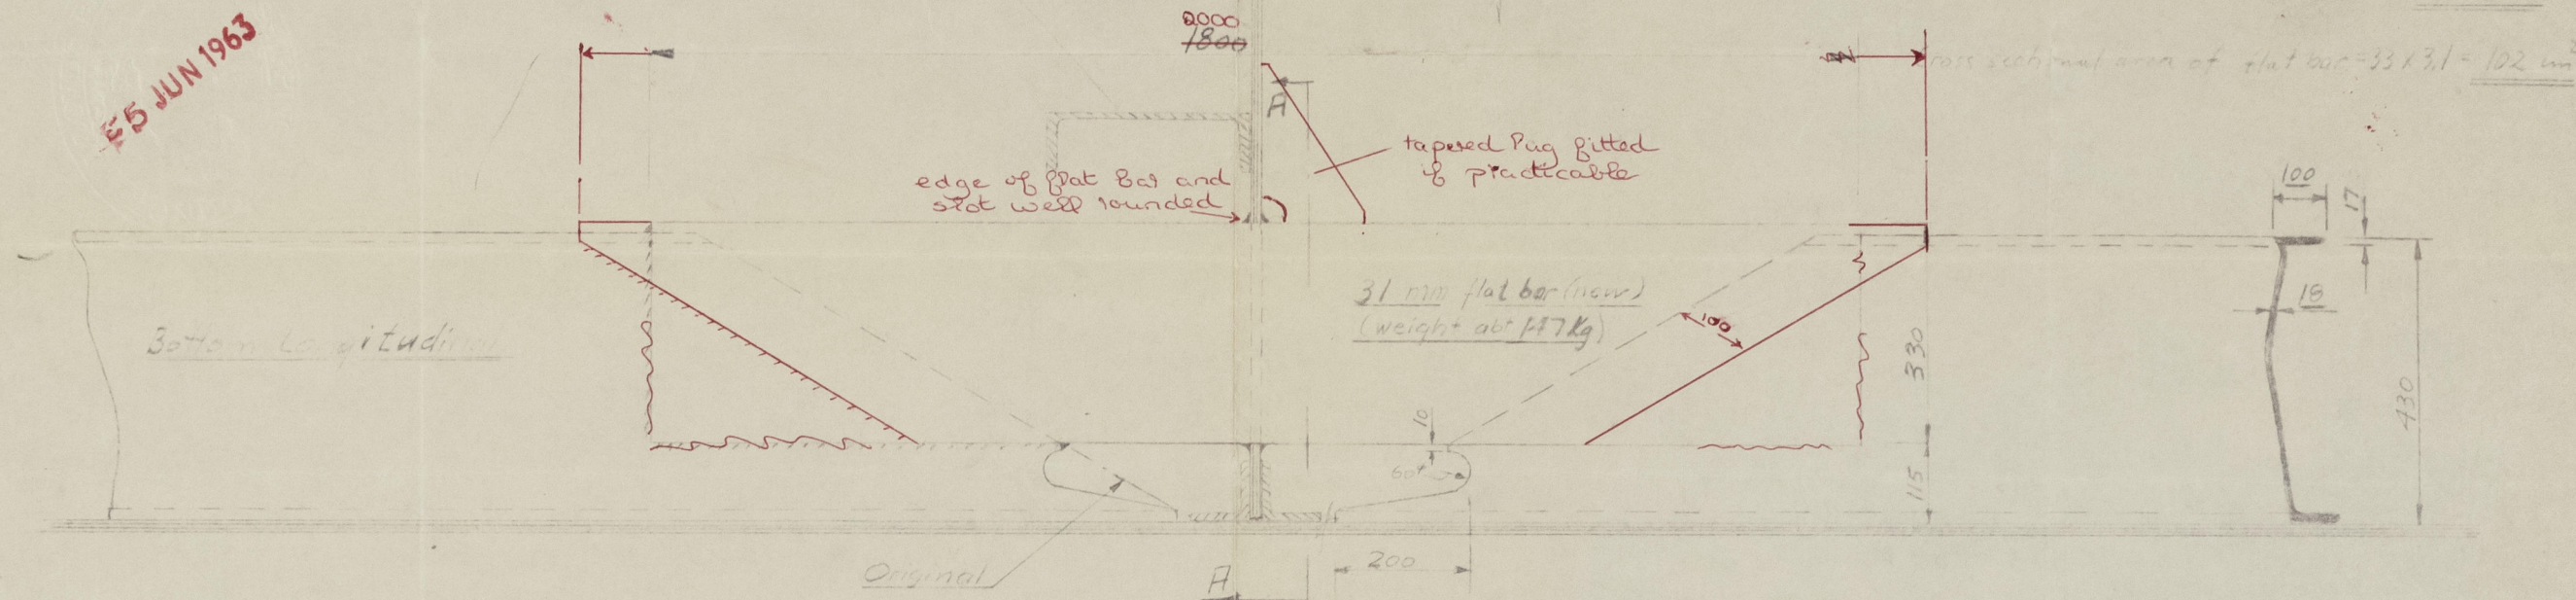 5 JUN 1963
2000
1800
cross sectional area of flat bar = 33 x 3.1 = 102 cm²
A
tapered lug fitted
if practicable
edge of flat bar and
slot well rounded
100
17
31 mm flat bar (new)
(weight abt 147 Kg)
18
100
Bottom Longitudinal
330
430
10
60
115
Original
200
A